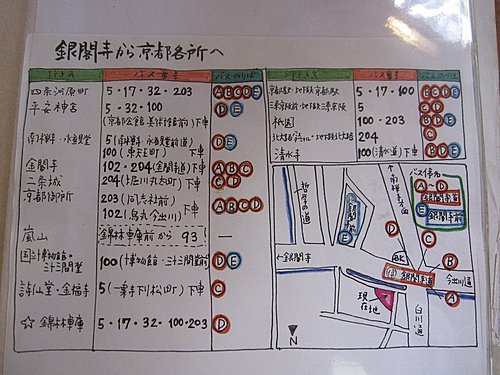 銀閣寺から京都各所へ
行き先 バス番号 バスのりば
四条河原町 5・17・32・203 ABCDE
平安神宮 5・32・100 DE
(京都会館美術館前)下車
南禅寺・永観堂 5(南禅寺・永観堂前道) DE
100(東天王町)下車
金閣寺 102・204(金閣寺道)下車 ABC
二条城 204(堀川丸太町)下車 CD
京都御所 203(同志社前) ABCD
102(烏丸今出川)下車
嵐山 錦林車庫前から 93! —
国立博物館・三十三間堂 100(博物館・三十三間堂前) DE
詩仙堂・金福寺 5(一乗寺下り松町)下車 C
☆ 錦林車庫 5・17・32・100・203 D
行き先 バス番号 バスのりば
京都駅・地下鉄京都駅 5・17・100
三条京阪前・地下鉄三条京阪 5
祇園 100・203
204
清水寺 100(清水道)下車
バス停名
A〜D 銀閣寺道
E 銀閣寺前
哲学の道
銀閣寺前
E
D
C
B
A
←金閣寺
BK
銀閣寺道
今出川通
現在地
白川通
N